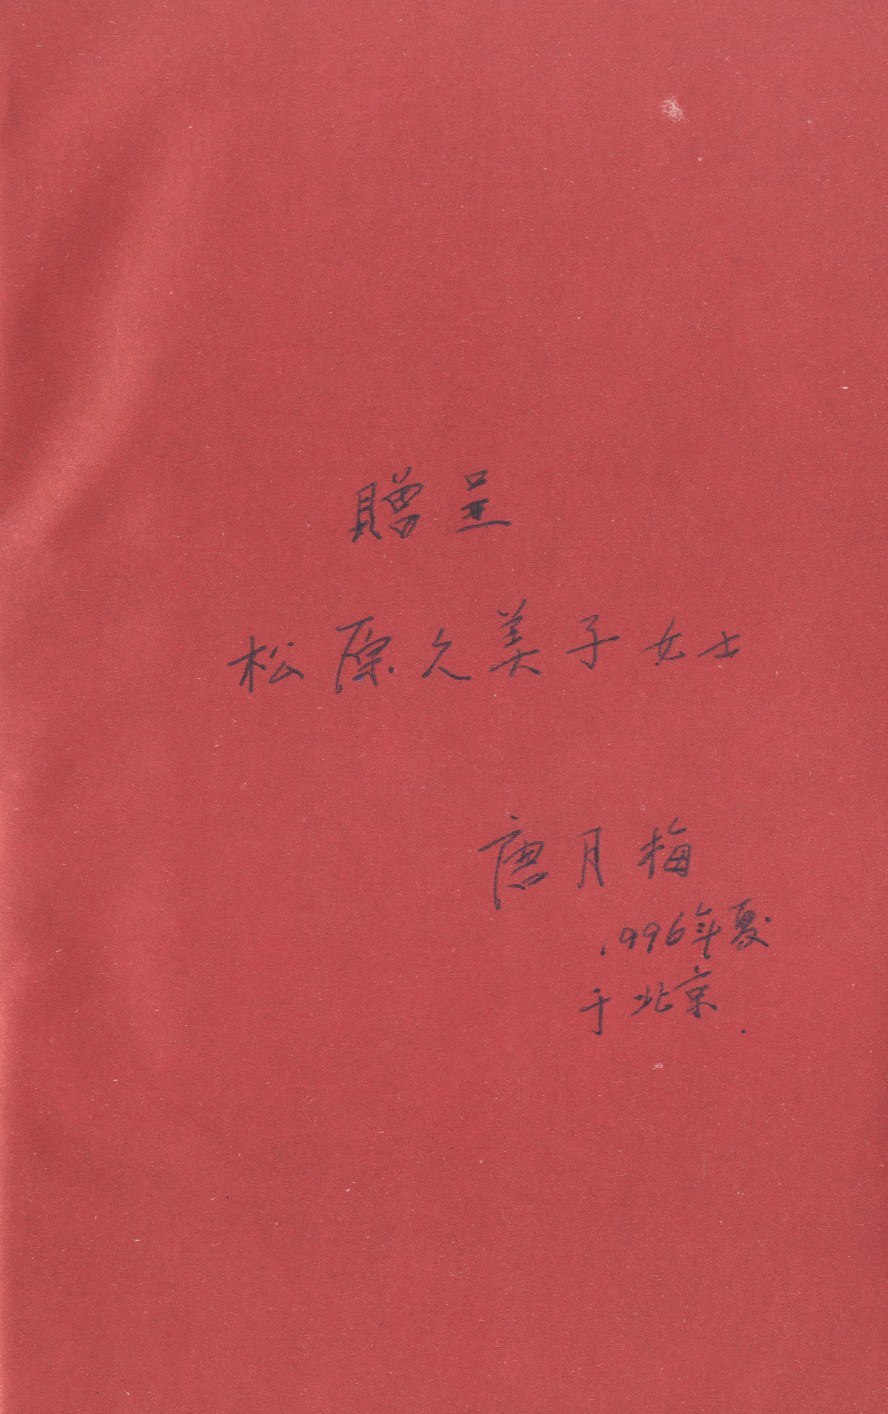 贈呈
松原久美子女士
唐月梅
1996年夏
于北京.